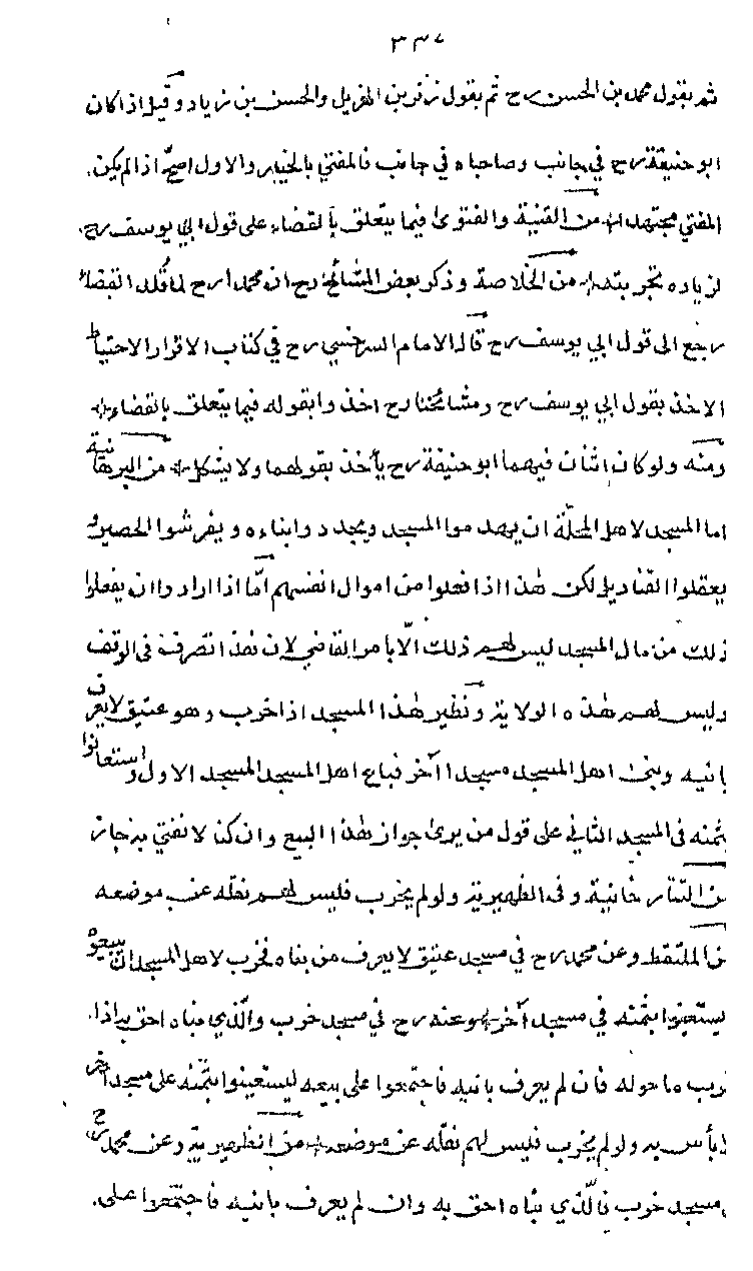 ٣٣٧
ثم بقول محمد بن الحسن رح ثم بقول زفر بن الهزيل والحسن بن زياد وقيل اذا كان
ابو حنيفة رح في جانب وصاحباه في جانب فالمفتي بالخيار والاول اصح اذا لم يكن
المفتي مجتهدا من القنية والفتوى فيما يتعلق بالقضاء على قول ابي يوسف رح
لزياده تجربته من الخلاصة وذكر بعض المشائخ رح ان محمدا رح لما قلد القضاء
رجع الى قول ابي يوسف رح قال الامام السرخسي رح في كتاب الاقرار الاحتياط
الاخذ بقول ابي يوسف رح ومشائخنا رح اخذوا بقوله فيما يتعلق بالقضاء
ومنه ولو كان اثنان فيهما ابو حنيفة رح يأخذ بقولهما ولا يشكل من البرهانية
اما المسجد لاهل المحلة ان يهدموا المسجد ويجددوا بناءه ويفرشوا الحصير و
يعقلوا القناديل لكن هذا اذا فعلوا من اموال انفسهم امّا اذا ارادوا ان يفعلوا
ذلك من مال المسجد ليس لهم ذلك الّا بامر القاضي لان هذا تصرف في الوقف
وليس لهم هذه الولاية ونظير هذا المسجد اذا خرب وهو عتيق لا يعرف
بانيه وبنى اهل المسجد مسجدا آخر فباع اهل المسجد المسجد الاول واستعانوا
بثمنه في المسجد الثاني على قول من يرى جواز هذا البيع وان كنا لا نفتي به جاز
من التتارخانية وفى الظهيرية ولو لم يخرب فليس لهم نقله عن موضعه
من الملتقط وعن محمد رح في مسجد عتيق لا يعرف من بناه فخرب لاهل المسجد ان يبيعوه
ليستعينوا بثمنه في مسجد آخر وعنه رح في مسجد خرب والّذي بناه احق به اذا
خرب ما حوله فان لم يعرف بانيه فاجتمعوا على بيعه ليستعينوا بثمنه على مسجد آخر
لا بأس به ولو لم يخرب فليس لهم نقله عن موضعه من الظهيرية وعن محمد رح
مسجد خرب فالّذي بناه احق به وان لم يعرف بانيه فاجتمعوا على